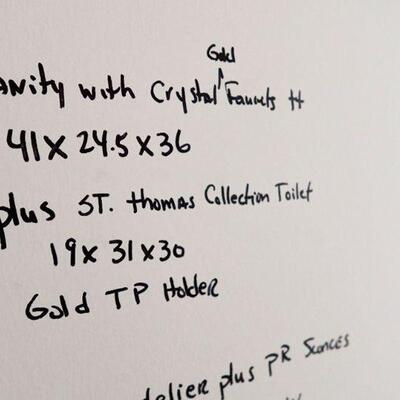 Gold
anity with Crystal ^ Faucets H
41 x 24.5 x 36
plus ST. Thomas Collection Toilet
19 x 31 x 30
Gold TP Holder
delier plus PR Sconces